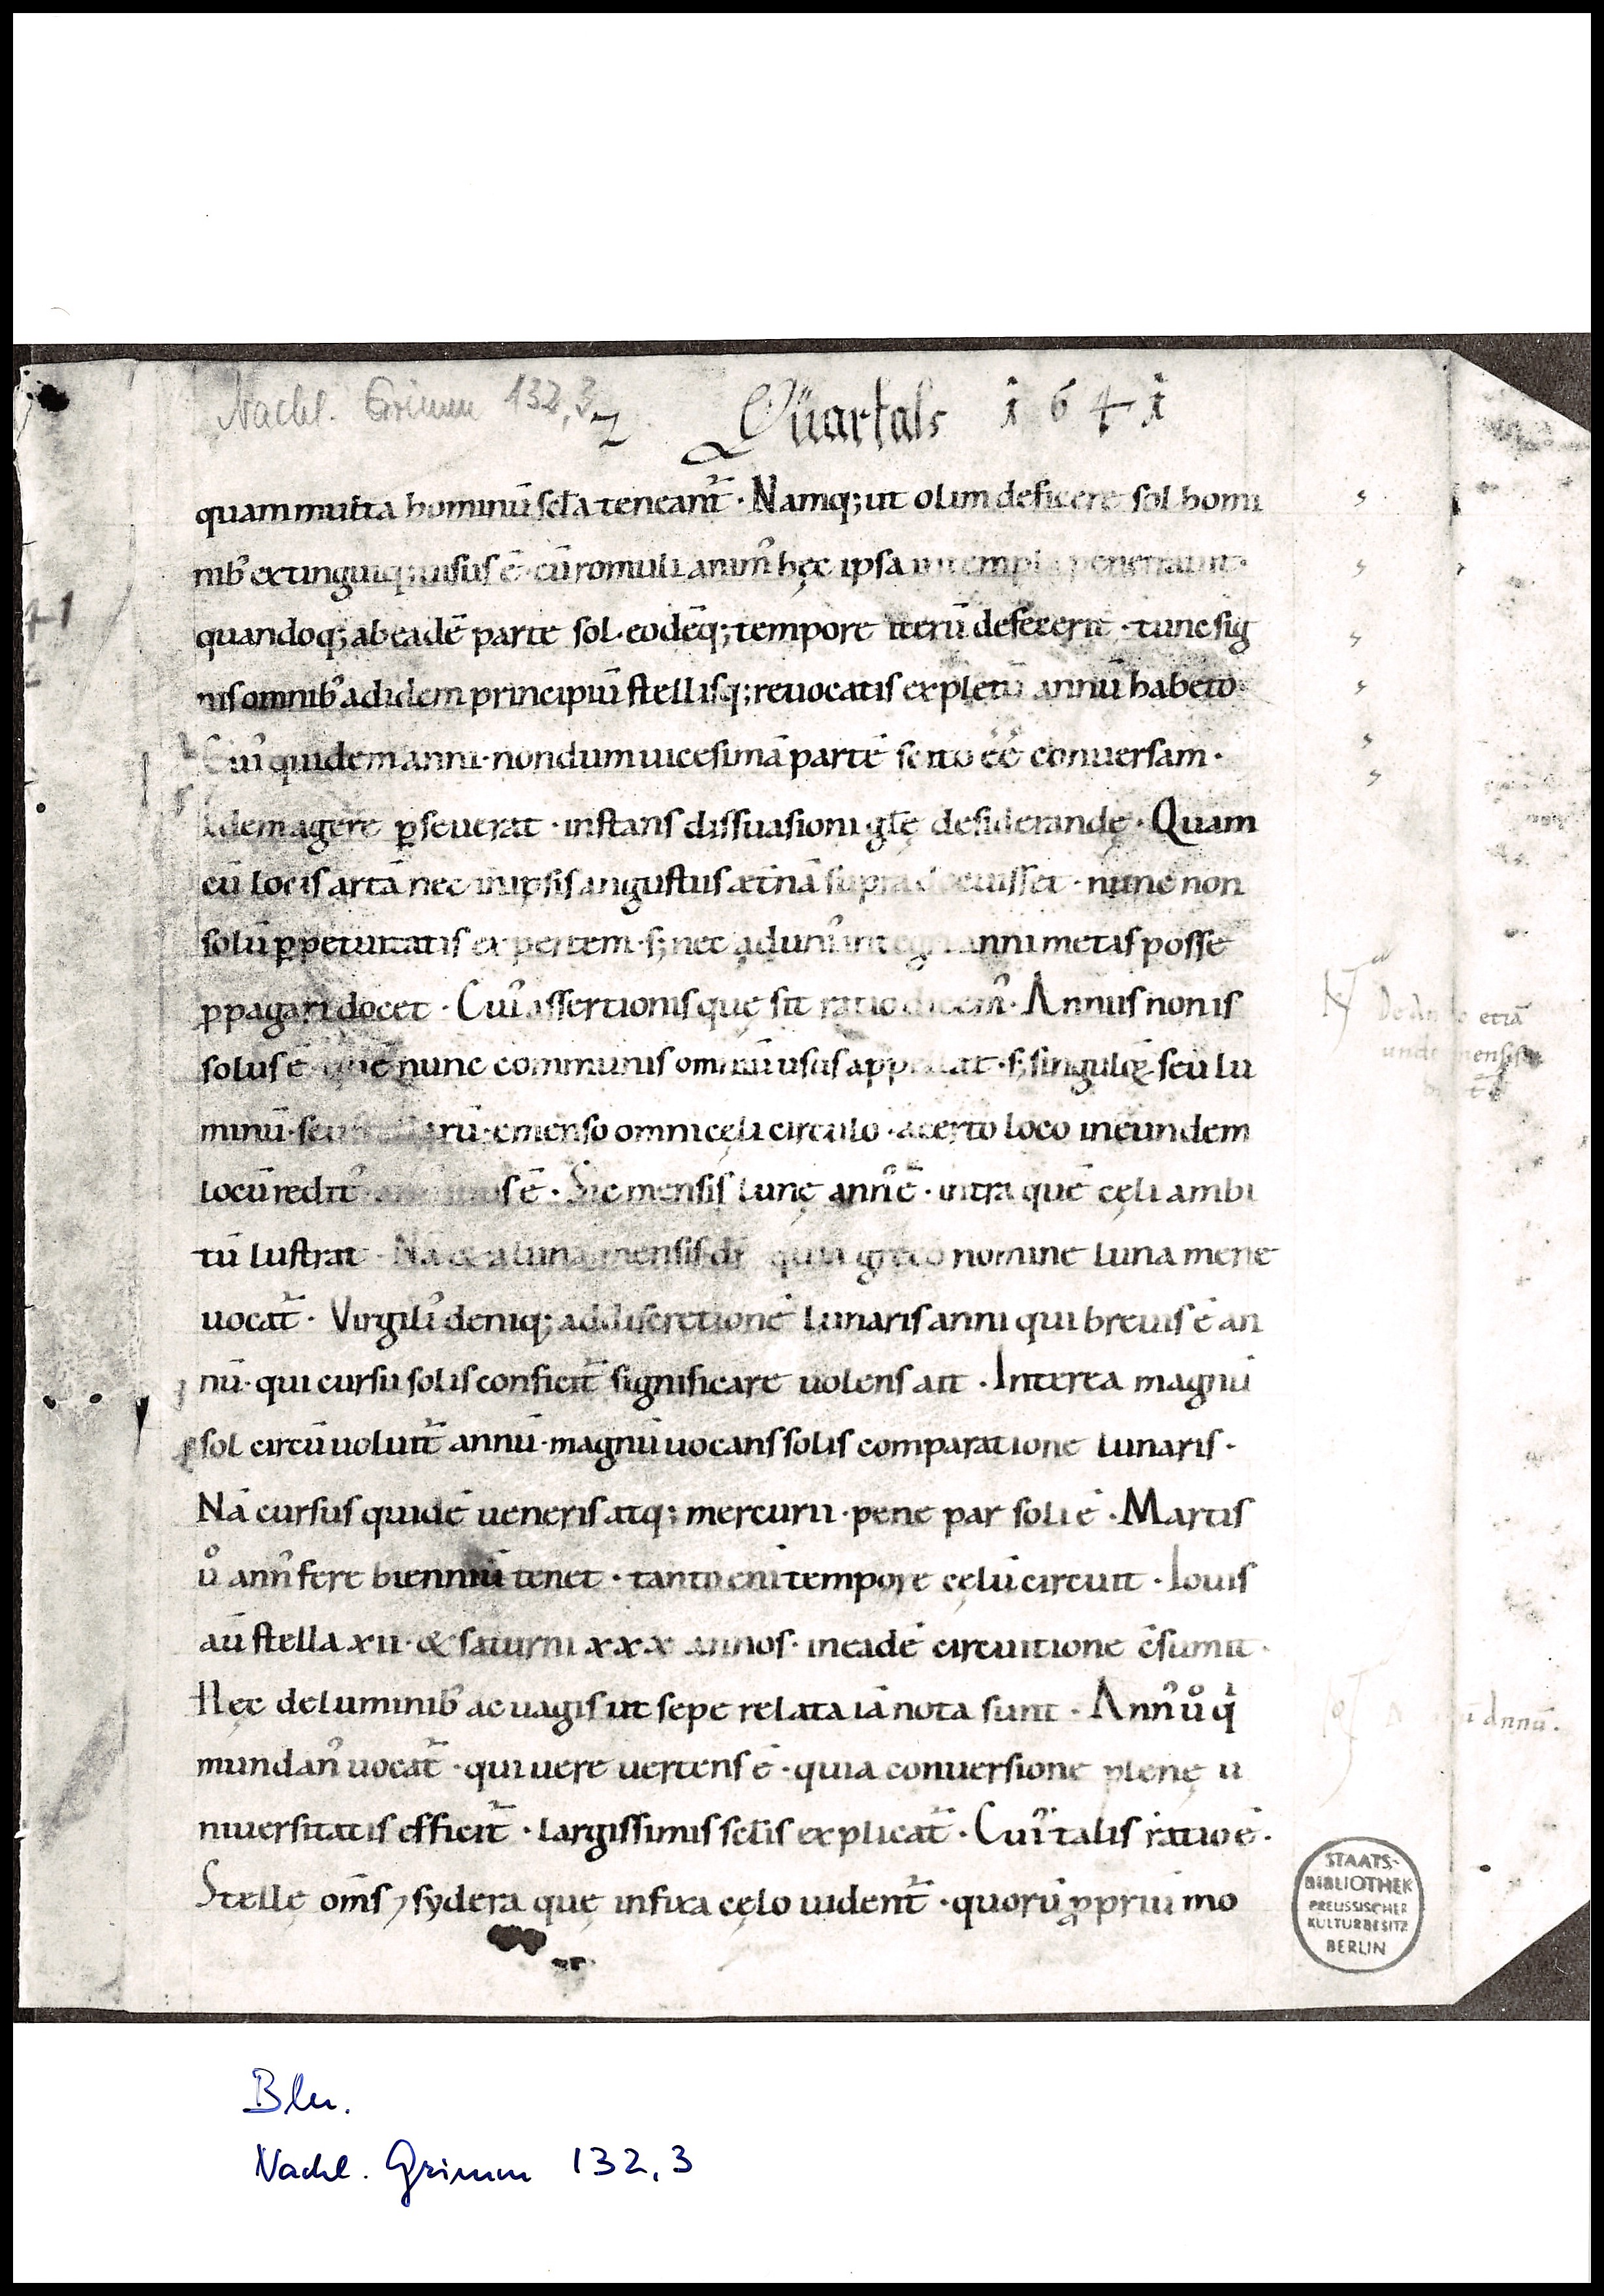 Nachl. Grimm 132,3
2 Quartals 1641
quam multa hominū scła teneant᷑ · Namq; ut olim deficere sol homi
nib᷒ extinguiq; uisus ē · cū romuli anim᷒ hęc ipsa in templa penetrauit ·
41
quandoq; ab eadē parte sol · eodēq; tempore iterū defecerit · tunc sig
nis omnib᷒ ad idem principiū stellisq; reuocatis expletū annū habeto
Cui᷒ quidem anni · nondum uicesimā partē scito ee᷑ conuersam ·
Idem agere ꝑseuerat · instans dissuasioni glę desiderandę · Quam
cū locis artā nec in ipsis angustus ætnā supra docuisset · nunc non
solū ꝑpetuitatis expertem · s; nec ad un᷒ integri anni metas posse
ꝓpagari docet · Cui᷒ assertionis quę sit ratio dicem᷒ · Annus non is
solus ē quē nunc communis omniū usus appellat · s; singuloꝝ seu lu
minū · seu stellarū · emenso omni cęli circulo · a certo loco in eundem
locū redit᷒ annus ē · Sic mensis lunę ann᷒ ē · intra quē cęli ambi
tū lustrat · Nā & a luna mensis dr̄ quia greco nomine luna mene
uocat᷑ · Virgili᷒ deniq; ad discretionē lunaris anni qui breuis ē an
nū · qui cursu solis conficit᷑ significare uolens ait · Interea magnū
sol circū uoluit᷑ annū · magnū uocans solis comparatione lunaris ·
Nā cursus quidē ueneris atq; mercurii · pene par soli ē · Martis
uͦ ann᷒ fere bienniū tenet · tanto eni tempore cęlū circuit · Iouis
aū stella xii · & saturni xxx annos · in eadē circuitione c̄sumit ·
Hęc de luminib᷒ ac uagis ut sepe relata iā nota sunt · Ann᷒ uͦ qi
mundan᷒ uocat᷑ · qui uere uertens ē · quia conuersione plenę u
niuersitatis efficit᷑ · largissimis scłis explicat᷑ · Cui᷒ talis ratio ē ·
Stellę om̄s ⁊ sydera quę infixa cęlo uident᷑ · quorū ꝓpriū mo
etiā
annū.
STAATS-
BIBLIOTHEK
PREUSSISCHER
KULTURBESITZ
BERLIN
Bln.
Nachl. Grimm 132,3